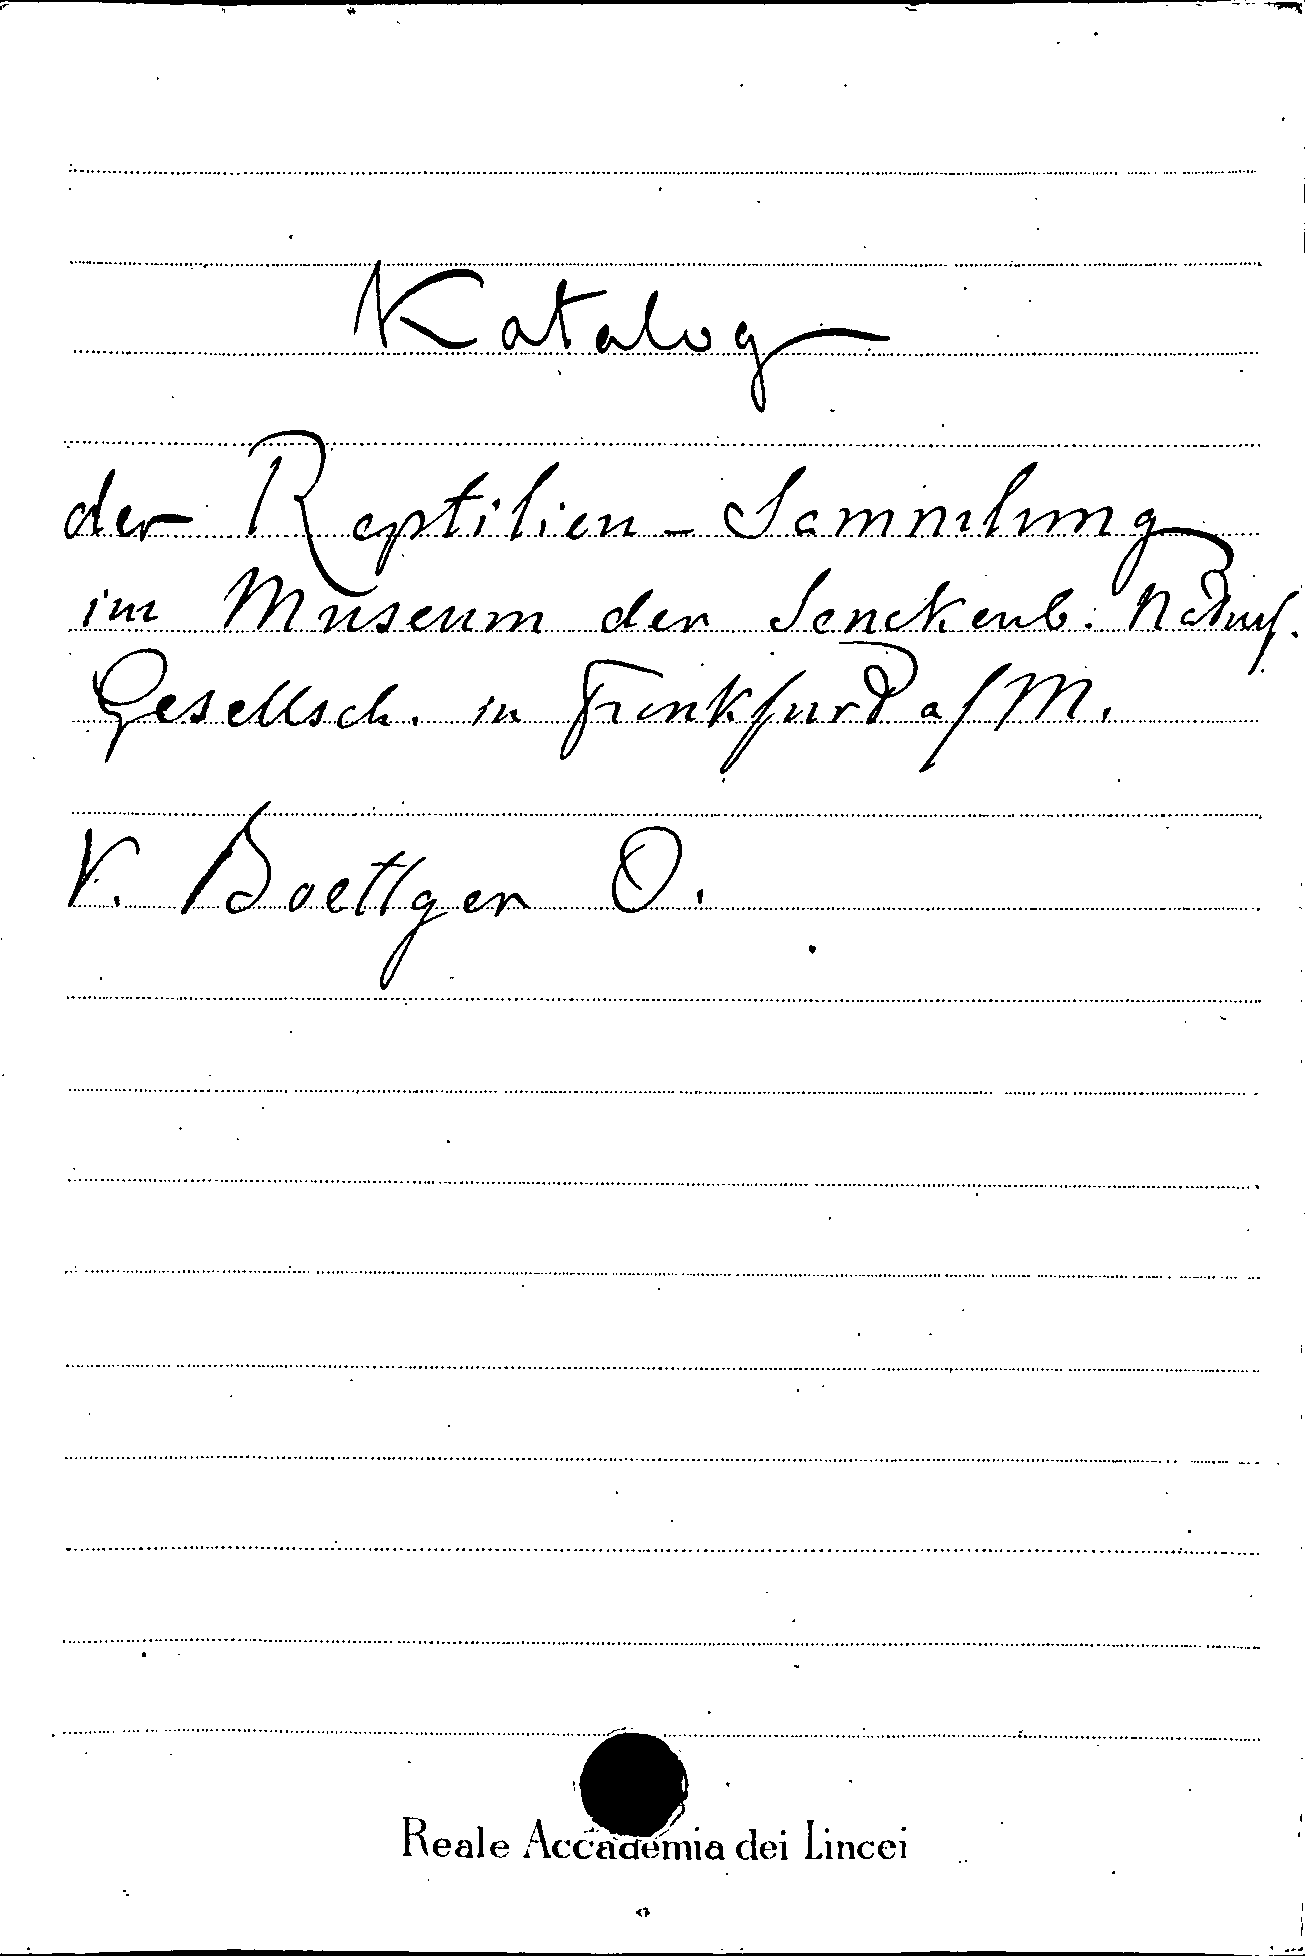 Katalog
der Reptilien - Sammlung
im Museum der Senckenb. Naturf.
Gesellsch. in Frankfurt a/M.
V. Boettger O.
Reale Accademia dei Lincei